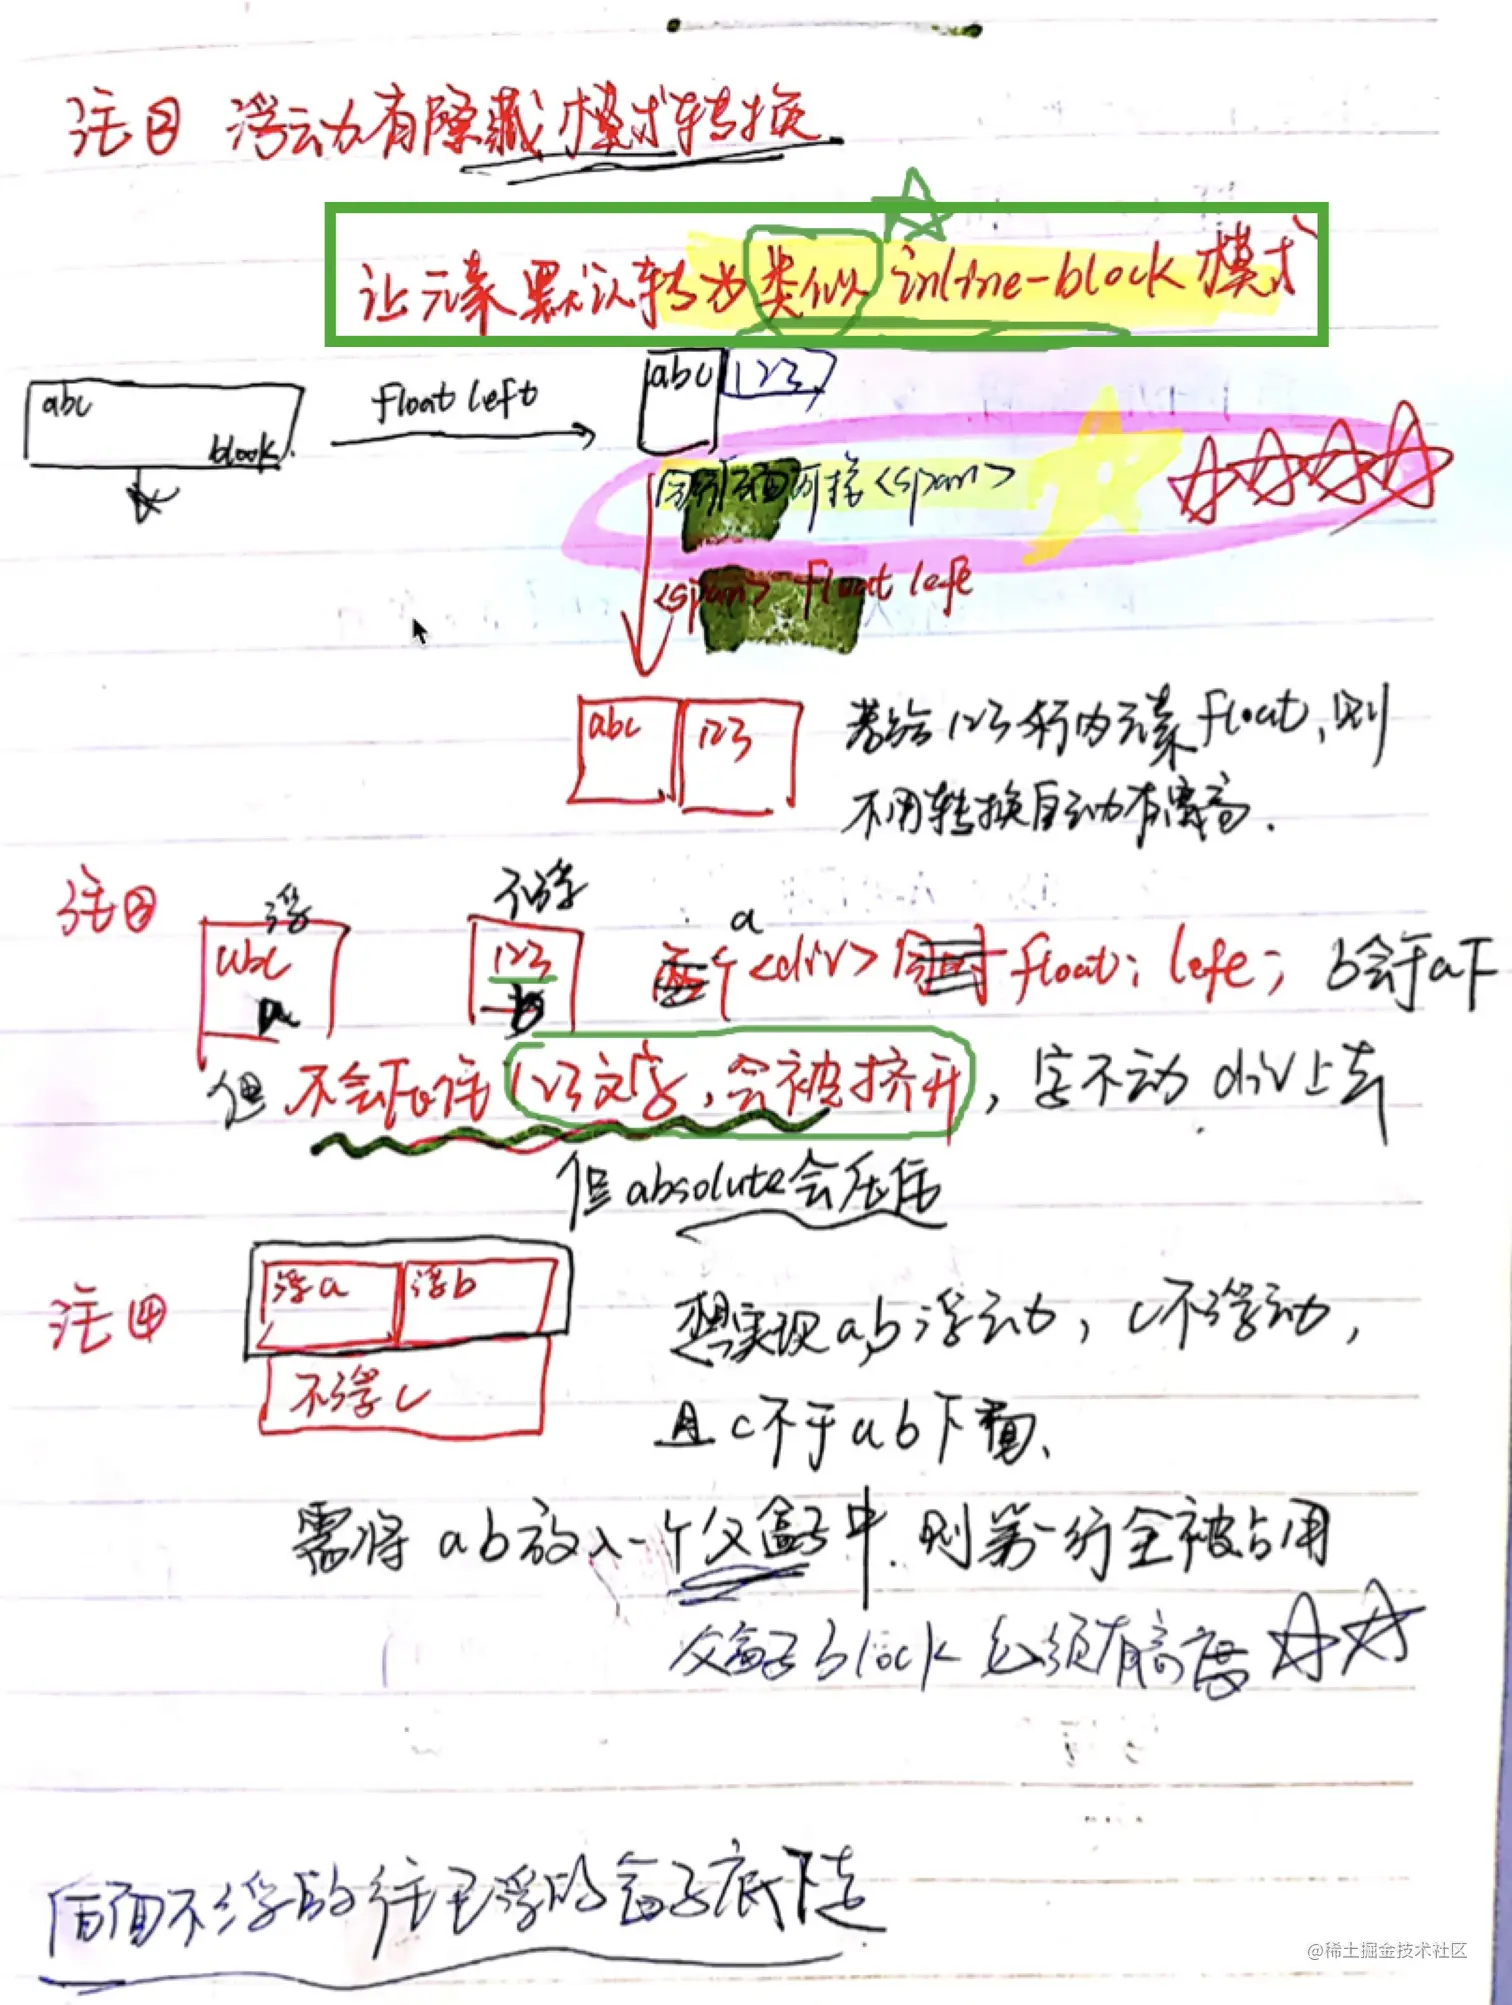 注② 浮动有隐藏模式转换
让元素默认转为类似 inline-block 模式
abc
block
float left
abc 123
可接<span>
<span> float left
abc 123
若给123行内元素float,则
不用转换自动有宽高.
注③
浮 不浮
abc 123
a b
a
<div> float: left; b会于a下
但 不会压住 123文字,会被挤开, 字不动 div上去
但absolute会压住
注④
浮a 浮b
不浮c
想实现a,b浮动, c不浮动,
且c不于ab下面、
需将 ab放入一个父盒子中. 则第一行全被占用
父盒子block 必须有高度
后面不浮的往已浮的盒子底下走
@稀土掘金技术社区